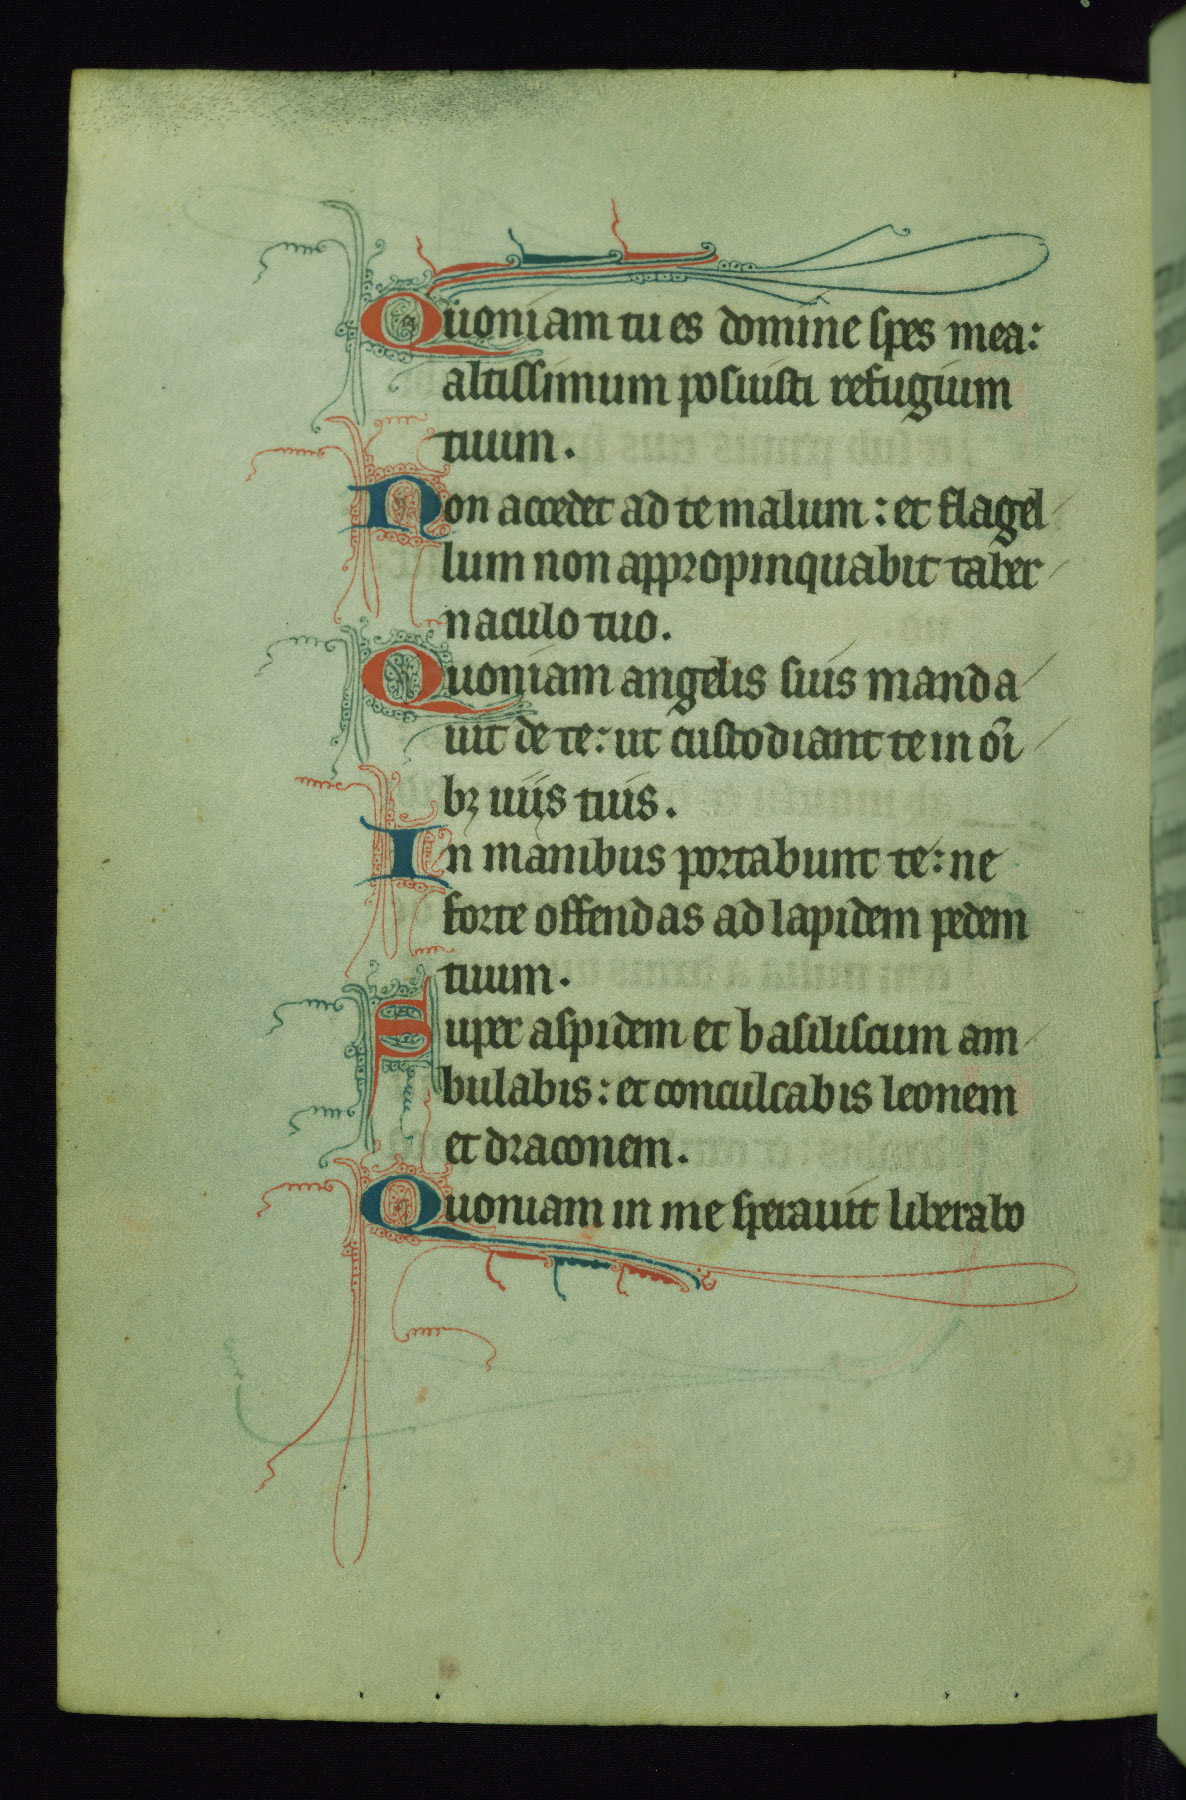 Quoniam tu es domine spes mea:
altissimum posuisti refugium
tuum.
Non accedet ad te malum: et flagel
lum non appropinquabit taber
naculo tuo.
Quoniam angelis suis manda
uit de te: ut custodiant te in o͞i
bꝫ uiis tuis.
In manibus portabunt te: ne
forte offendas ad lapidem pedem
tuum.
Super aspidem et basiliscum am
bulabis: et conculcabis leonem
et draconem.
Quoniam in me sperauit liberabo